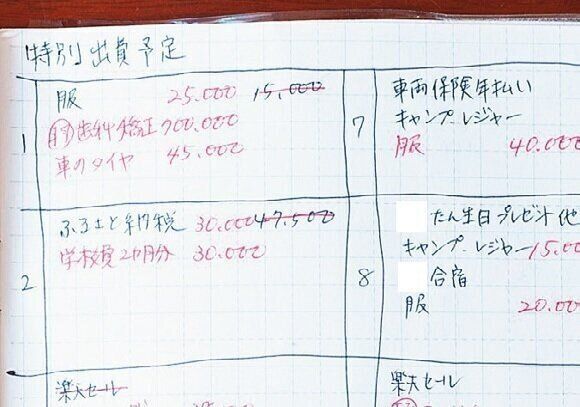 「特別」出費予定
1
服 25.000 15.000
歯科矯正 900.000
車のタイヤ 45.000
2
ふるさと納税 30.000 47.500
学校費2ヶ月分 30.000
楽天セール
7
車両保険年払い
キャンプ・レジャー
服 40.000
8
たん生日プレゼント他
キャンプ・レジャー 15.00
合宿
服 20.00
楽天セール